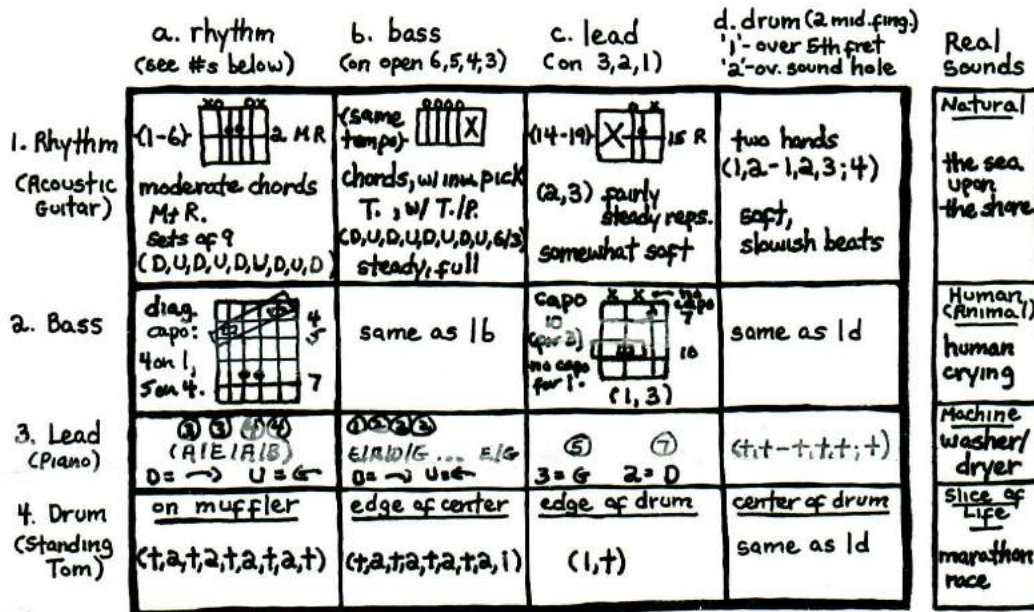 a. rhythm
(see #s below)
b. bass
(on open 6,5,4,3)
c. lead
(on 3,2,1)
d. drum (2 mid. fing.)
'1'- over 5th fret
'2'-ov. sound hole
Real
Sounds
1. Rhythm
(Acoustic
Guitar)
(1-6)
xo ox
2 M R
moderate chords
M+R.
sets of 9
(D,U,D,U,D,U,D,U,D)
(same
tempo)
oooo
X
chords, w/ pick
T., w/ T./P.
(D,U,D,U,D,U,D,U,6/3)
steady, full
(14-19)
o x
X
15 R
(2,3) fairly
steady reps.
somewhat soft
two hands
(1,2-1,2,3;4)
soft,
slowish beats
Natural
the sea
upon
the shore
2. Bass
diag.
capo:
4 on 1,
5 on 4.
4
5
7
same as 1b
capo
10
(for 3)
no capo
for 1.
x x
no
capo
7
10
(1,3)
same as 1d
Human
(Animal)
human
crying
3. Lead
(Piano)
(A/E/A/B)
D= → U= ←
① ② ② ②
E/A/D/G ... E/G
D= → U= ←
⑤ ⑦
3=G 2=D
(t,t-t,t,t;t)
Machine
washer/
dryer
4. Drum
(Standing
Tom)
on muffler
(t,a,t,a,t,a,t,a,t)
edge of center
(t,a,t,a,t,a,t,a,i)
edge of drum
(1,t)
center of drum
same as 1d
Slice of
Life
marathon
race